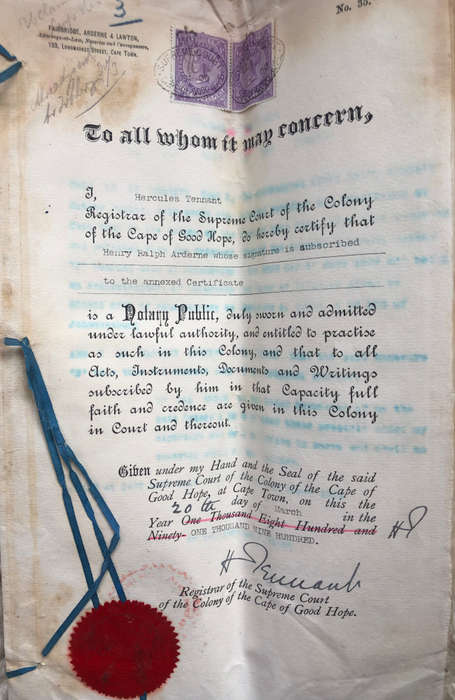 No. 30.
3
FAIRBRIDGE, ARDERNE & LAWTON,
Attorneys-at-Law, Notaries and Conveyancers,
130, LONGMARKET STREET, CAPE TOWN.
To all whom it may concern,
I, Hercules Tennant
Registrar of the Supreme Court of the Colony
of the Cape of Good Hope, do hereby certify that
Henry Ralph Arderne whose signature is subscribed
to the annexed Certificate
is a Notary Public, duly sworn and admitted
under lawful authority, and entitled to practise
as such in this Colony, and that to all
Acts, Instruments, Documents and Writings
subscribed by him in that Capacity full
faith and credence are given in this Colony
in Court and thereout.
Given under my Hand and the Seal of the said
Supreme Court of the Colony of the Cape of
Good Hope, at Cape Town, on this the
20th day of March in the
Year One Thousand Eight Hundred and
Ninety- ONE THOUSAND NINE HUNDRED.
HT
H Tennant
Registrar of the Supreme Court
of the Colony of the Cape of Good Hope.